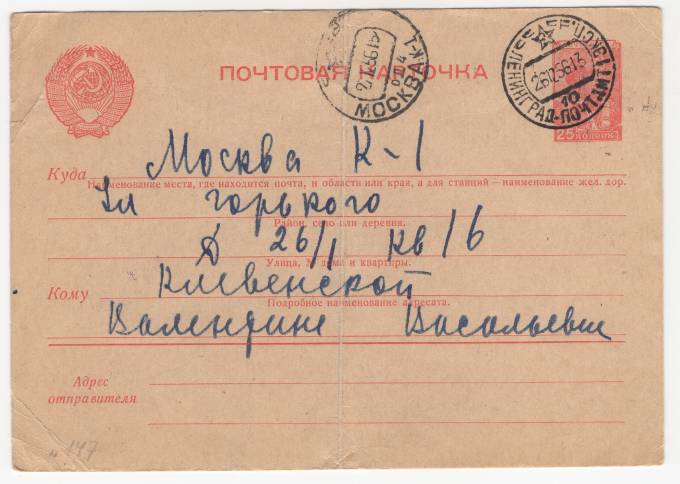 ПОЧТОВАЯ КАРТОЧКА
МОСКВА К-9
ЛЕНИНГРАД-ПОЧТАМТ
10
25 КОПЕЕК
Куда Москва К-1
Наименование места, где находится почта, и области или края, а для станций — наименование жел. дор.
Ул горького
Район, село или деревня.
Д 26/1 кв 16
Улица, № дома и квартиры.
Кому Клевенской
Подробное наименование адресата.
Валентине Васильевне
Адрес
отправителя
147